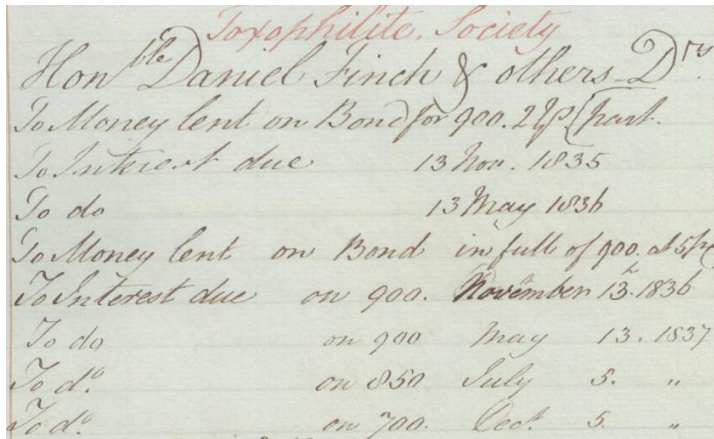 Toxophilite Society
Hon ble Daniel Finch & others Drs.
To Money lent on Bond for 900. part.
To Interest due 13 Nov. 1835
To do 13 May 1836
To Money lent on Bond in full of 900. at 5 p
To Interest due on 900. November 13. 1836
To do on 900 May 13. 1837
To do. on 850 July 5. "
To do. on 700. Oct. 5. "